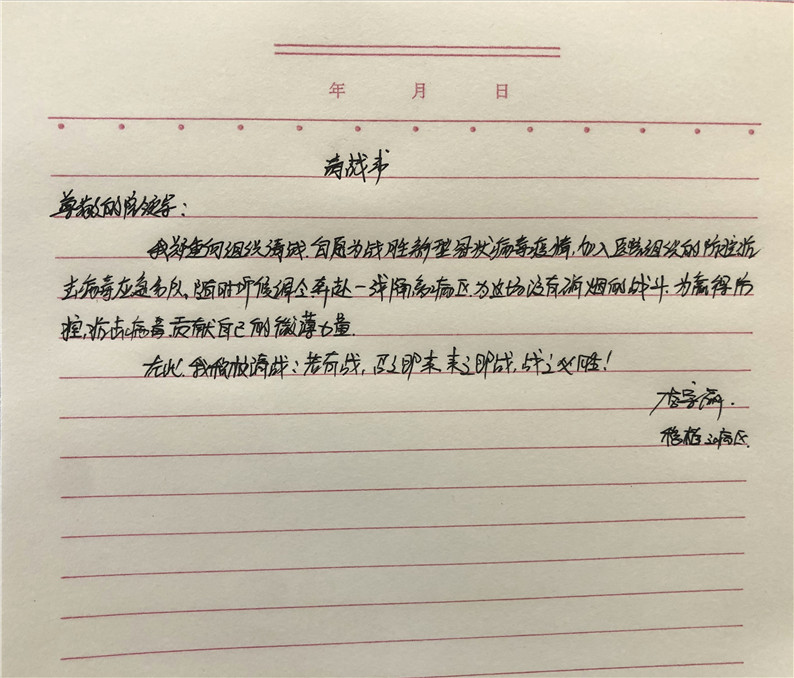 年 月 日
请战书
尊敬的院领导：
我郑重向组织请战，自愿为战胜新型冠状病毒疫情，加入医院组织的防控抗
击病毒应急部队，随时听候调令奔赴一线隔离病区，为这场没有硝烟的战斗，为赢得防
控，抗击病毒，贡献自己的微薄力量．
在此，我积极请战：若有战，召之即来，来之即战，战之必胜！
病区